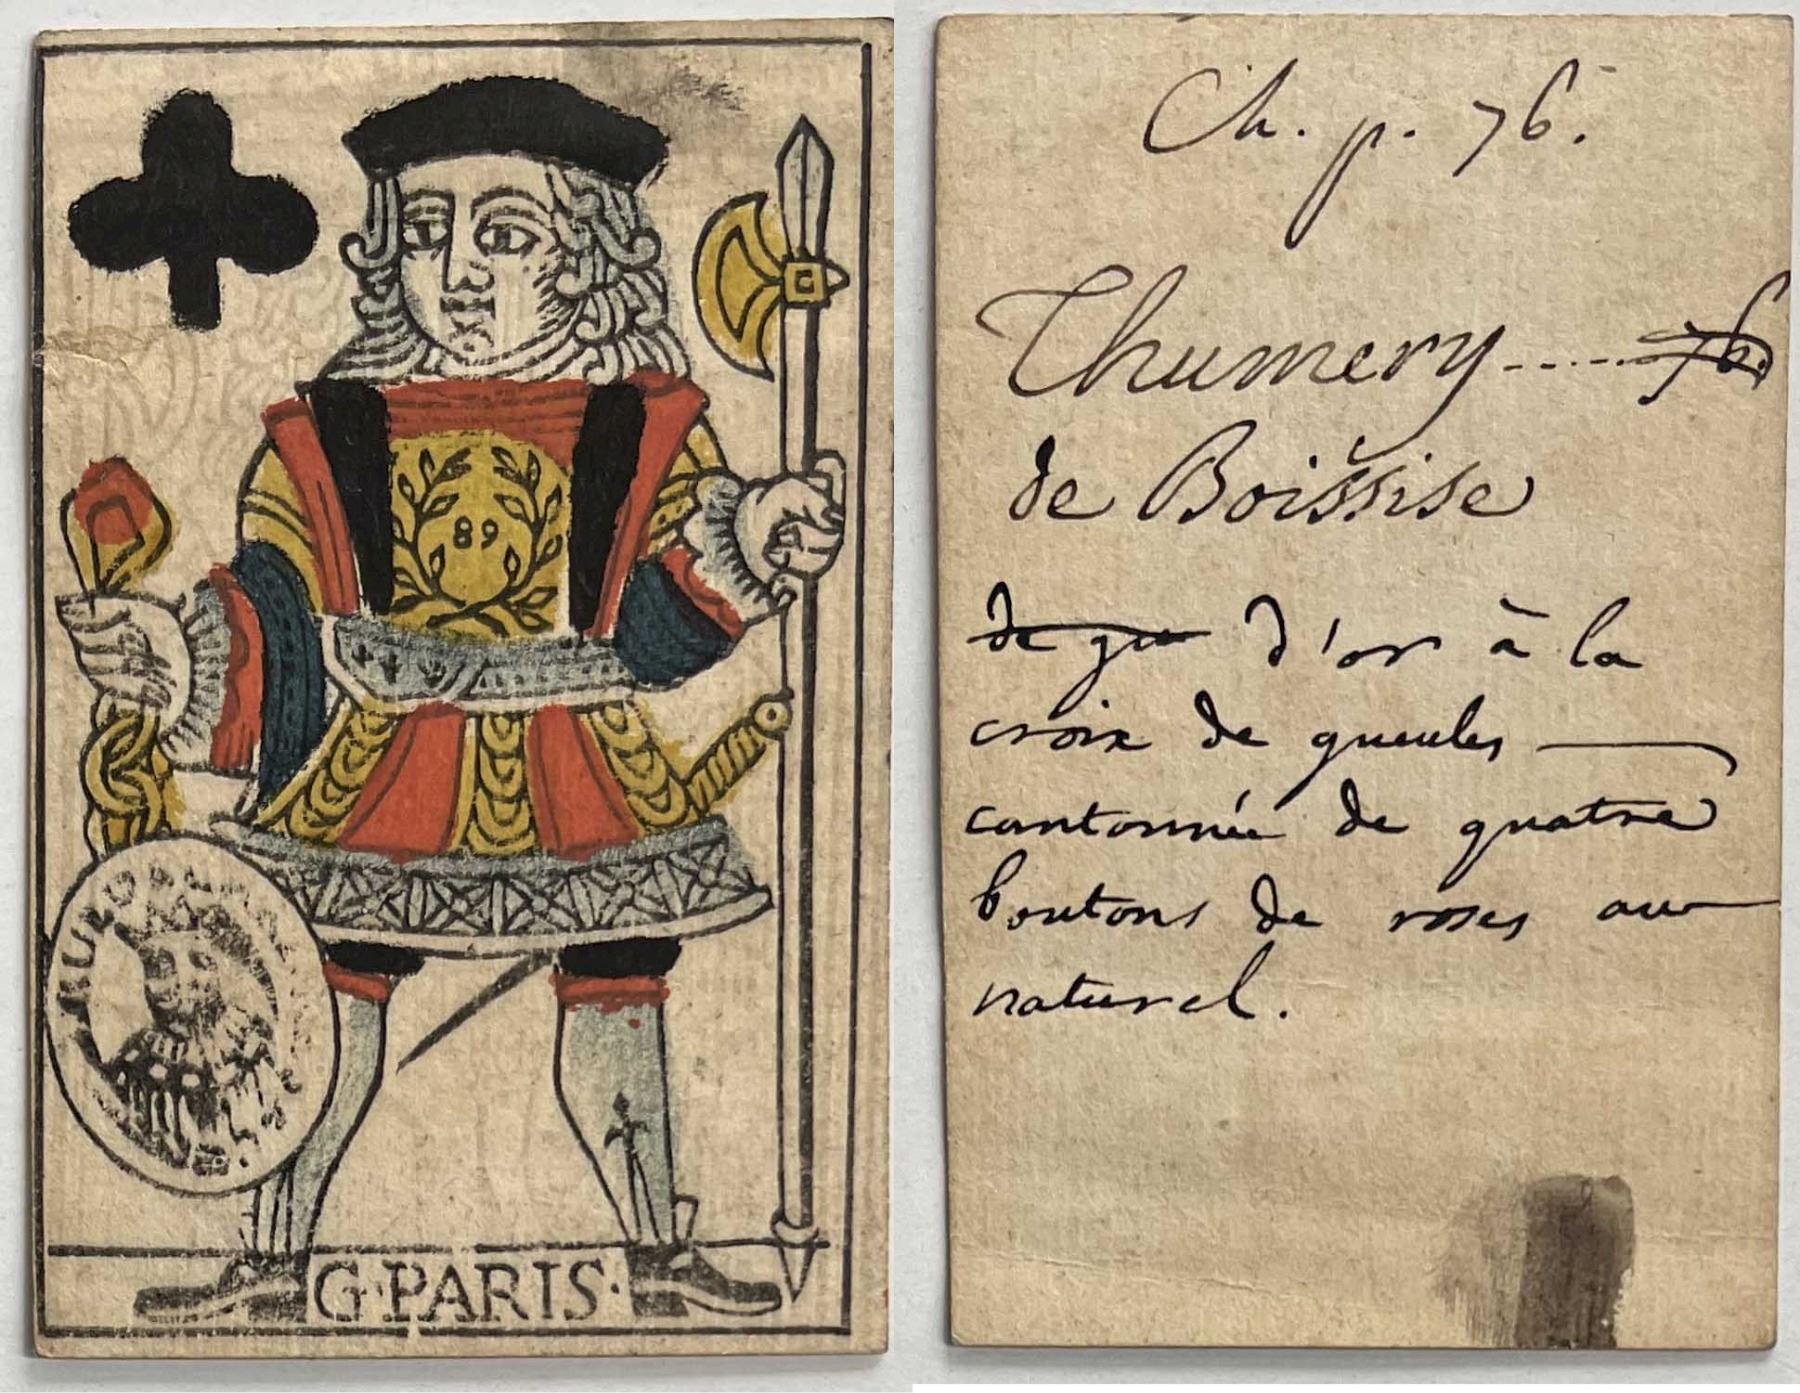 89
G·PARIS·
Ch. p. 76.
Thumery ..... 76.
de Boissise
de gu d'or à la
croix de gueules
cantonnée de quatre
boutons de roses au
naturel.